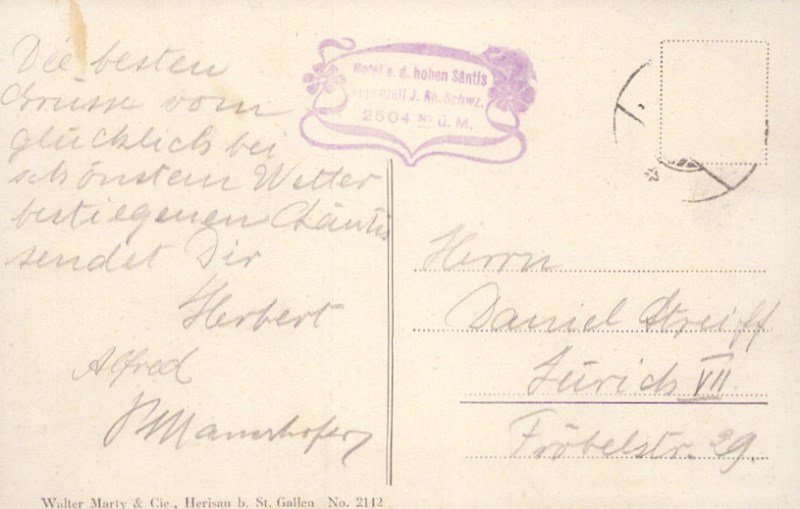 Die besten
Grüsse vom
glücklich bei
schönstem Wetter
bestiegenen Säntis
sendet Dir
Herbert
Alfred
Hotel a. d. hohen Säntis
Appenzell J. Rh. Schwz.
2504 m ü. M.
Herrn
Daniel Streiff
Zürich VII
Fröbelstr. 29.
Walter Marty & Cie., Herisau b. St. Gallen No. 2142